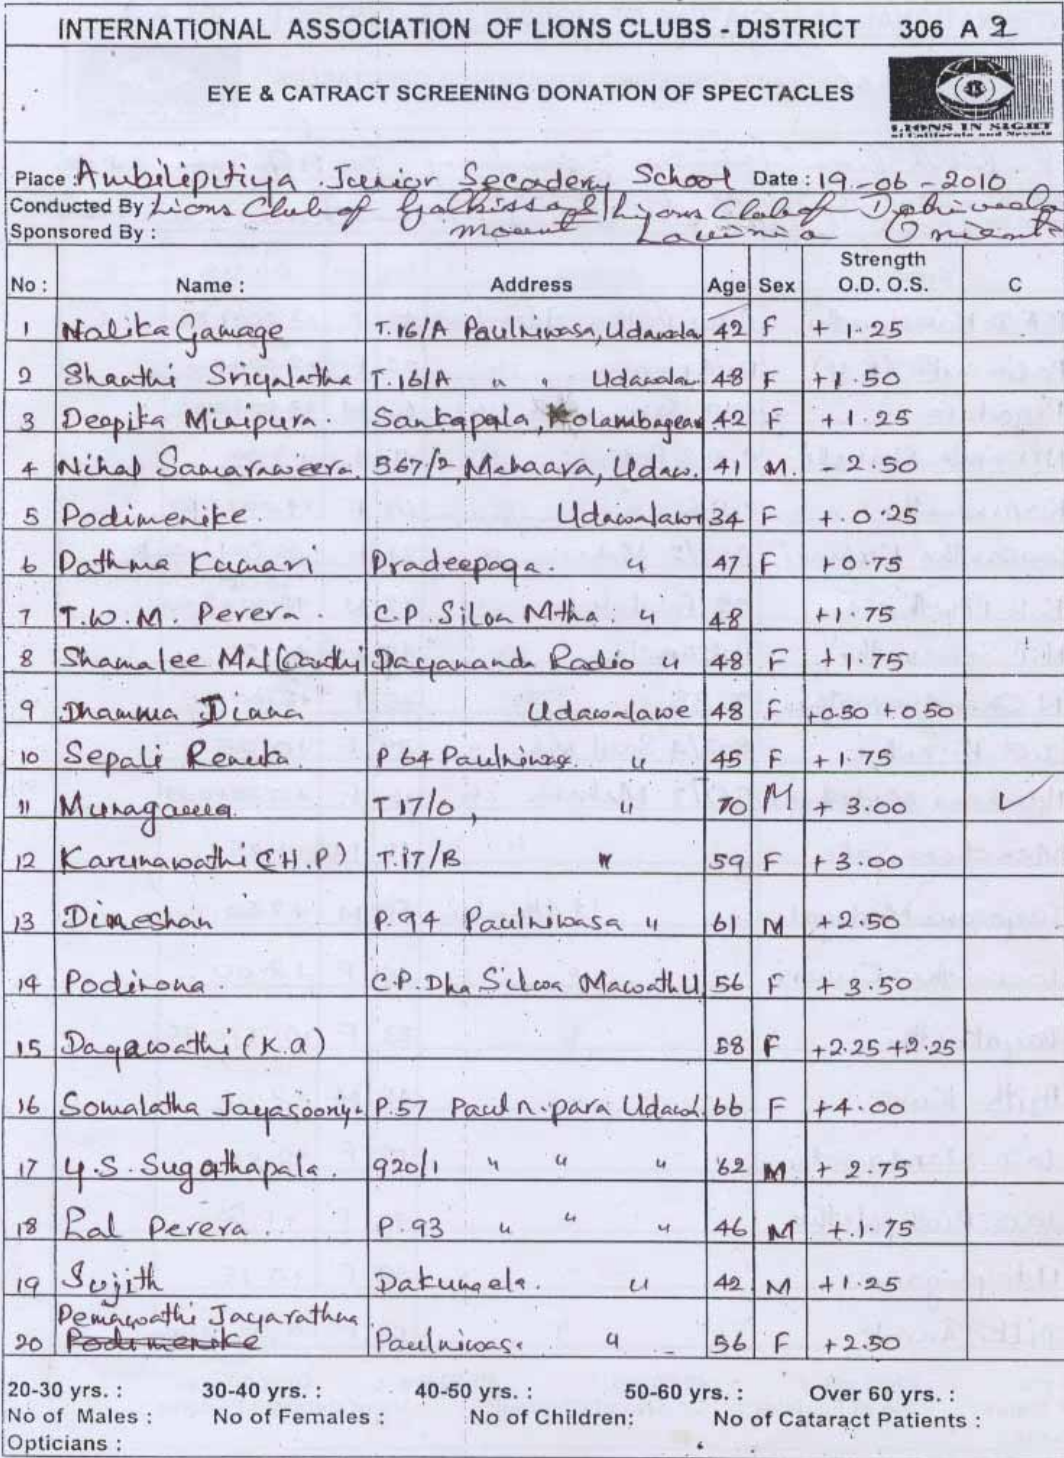 INTERNATIONAL ASSOCIATION OF LIONS CLUBS - DISTRICT 306 A 2
EYE & CATRACT SCREENING DONATION OF SPECTACLES
LIONS IN SIGHT
of California and Nevada
Place : Ambilipitiya Junior Secadery School Date : 19-06-2010
Conducted By Lions Club of Galkissa / Lions Club of Dehiwala
Sponsored By : mount Lavinia Orient
No : Name : Address Age Sex Strength O.D. O.S. C
1 Nalika Gamage T.16/A Paulniwasa, Udawala 42 F +1.25
2 Shanthi Sriyalatha T.16/A " " Udawala 48 F +1.50
3 Deepika Minipura. Sankapala, Kolambagean 42 F +1.25
4 Nihal Samaraweera. 567/2, Mahaara, Udaw. 41 M. -2.50
5 Podimenike. Udawalawe 34 F +.0.25
6 Pathma Kumari Pradeepaga. " 47 F +0.75
7 T.W.M. Perera. C.P. Silva Mtha. " 48 +1.75
8 Shamalee Mal(Ganthi Dayananda Radio " 48 F +1.75
9 Dhamma Dinna Udawalawe 48 F +0.50 +0.50
10 Sepali Renuka. P 64 Paulniwas. " 45 F +1.75
11 Munagama. T 17/0, " 70 M +3.00 ✓
12 Karunawathi (H.P) T.17/B " 59 F +3.00
13 Dimeshan P.94 Paulniwasa " 61 M +2.50
14 Podinona. C.P. Dha Silwa Mawath U 56 F +3.50
15 Dayawathi (K.a) 58 F +2.25 +2.25
16 Somalatha Jayasooriya P.57 Paul n.para Udawl. 66 F +4.00
17 Y.S. Sugathapala. 920/1 " " " 62 M +2.75
18 Lal Perera. P.93 " " " 46 M +.1.75
19 Sujith Dakungela. " 42 M +1.25
Pemawathi Jayarathna
20 Podimenike Paulniwas. " 56 F +2.50
20-30 yrs. : 30-40 yrs. : 40-50 yrs. : 50-60 yrs. : Over 60 yrs. :
No of Males : No of Females : No of Children: No of Cataract Patients :
Opticians :